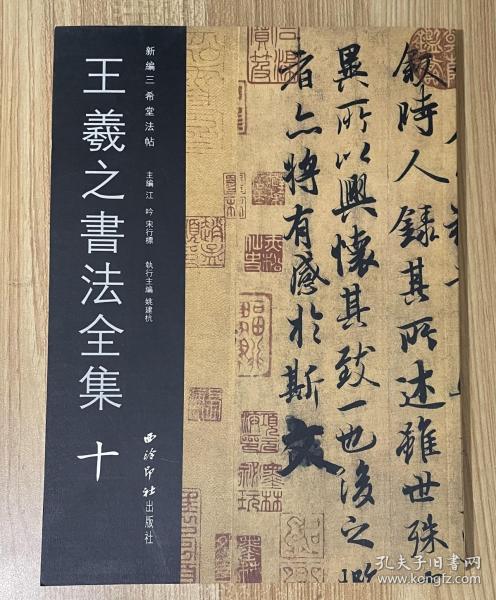 新编三希堂法帖
王羲之書法全集 十
主编 江吟 宋行標
執行主编 姚建杭
西泠印社出版社
敘時人錄其所述雖世殊
異所以興懷其致一也後之
者亦將有感於斯文
孔夫子旧书网
www.kongfz.com